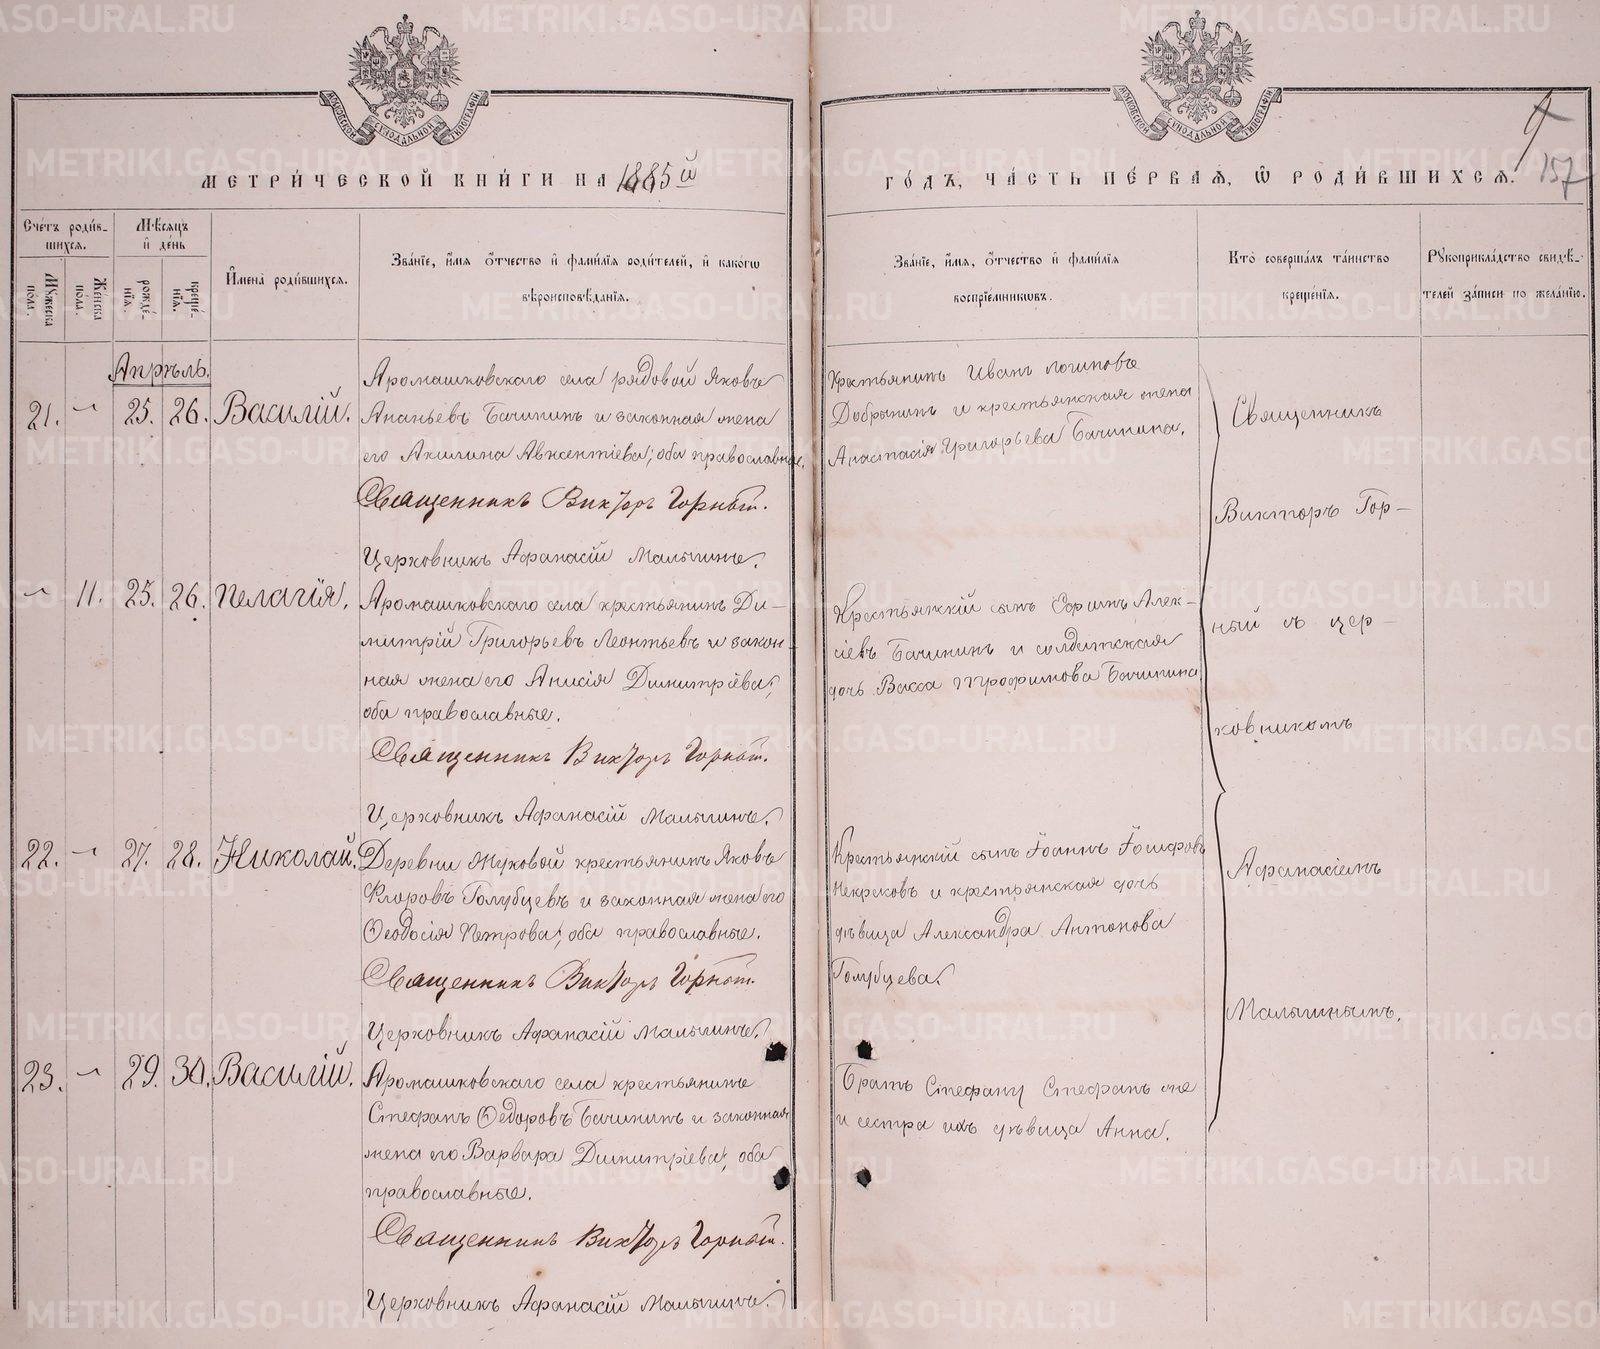 МОСКОВСКОЙ СУНОДАЛЬНОЙ ТИПОГРАФІИ
МОСКОВСКОЙ СУНОДАЛЬНОЙ ТИПОГРАФІИ
МЕТРИ́ЧЕСКОЙ КНИ́ГИ НА 1885й
ГО́ДЪ, ЧА́СТЬ ПЕ́РВАѦ, Ѿ РОДИ́ВШИХСѦ.
157
Сче́тъ роди́в-
шихсѧ.
Мꙋ́жеска по́ла.
Же́нска по́ла.
Мѣ́сѧцъ
и҆ де́нь
рожде́-
нїѧ.
креще́-
нїѧ.
И҆мена̀ роди́вшихсѧ.
Зва́нїе, и҆́мѧ ѻ҆́тчество и҆ фамі́лїѧ роди́телей, и҆ како́гѡ
вѣроисповѣ́данїѧ.
Зва́нїе, и҆́мѧ, ѻ҆́тчество и҆ фамі́лїѧ
воспрїе́мникѡвъ.
Кто̀ соверша́лъ та́инство
креще́нїѧ.
Рꙋкоприкла́дство свидѣ́-
телей за́писи по жела́нїю.
Апрѣль.
21. — 25. 26. Василій.
Аромашковскаго села рядовой Яковъ
Ананьевъ Бачининъ и законная жена
его Акилина Авксентіева; оба православные.
Священникъ Викторъ Горный.
Церковникъ Афанасій Малыгинъ.
Крестьянинъ Иванъ Логиновъ
Добрынинъ и крестьянская жена
Анастасія Григорьева Бачинина.
— 11. 25. 26. Пелагія.
Аромашковскаго села крестьянинъ Ди-
митрій Григорьевъ Леонтьевъ и закон-
ная жена его Анисія Димитріева;
оба православные.
Священникъ Викторъ Горный.
Церковникъ Афанасій Малыгинъ.
Крестьянскій сынъ Алек-
сіевъ Бачининъ и солдатская
дочь Васса Трофимова Бачинина
22. — 27. 28. Николай.
Деревни Жуковой крестьянинъ Яковъ
Флоровъ Голубцевъ и законная жена его
Ѳеодосія Петрова; оба православные.
Священникъ Викторъ Горный.
Церковникъ Афанасій Малыгинъ.
Крестьянскій сынъ Іоаннъ Іосифовъ
Некрасовъ и крестьянская дочь
дѣвица Александра Антонова
Голубцева.
23. — 29. 30. Василій.
Аромашковскаго села крестьянинъ
Стефанъ Ѳедоровъ Бачининъ и законная
жена его Варвара Димитріева; оба
православные.
Священникъ Викторъ Горный.
Церковникъ Афанасій Малыгинъ.
Братъ Стефану Стефанъ же
и сестра ихъ дѣвица Анна.
Священникъ
Викторъ Гор-
ный съ цер-
ковникомъ
Афанасіемъ
Малыгинымъ.
METRIKI.GASO-URAL.RU